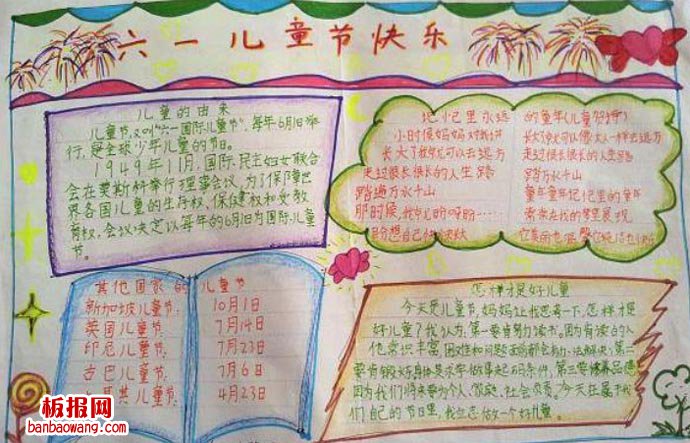 六一儿童节快乐
儿童的由来
儿童节,又叫"六一国际儿童节",每年6月1日举
行,是全球少年儿童的节日。
1949年11月,国际民主妇女联合
会在莫斯科举行理事会议,为了保障世
界各国儿童的生存权、保健权和受教
育权,会议决定以每年的6月1日为国际儿童
节。
记忆里永远的童年(儿童诗抄)
小时候妈妈对我讲
长大了我就可以去远方
走过很长很长的人生路
踏遍万水千山
那时候,我就盼呀盼……
长大了就可以像大人一样去远方
走过很长很长的人生路
踏遍万水千山
童年童年记忆里的童年
其他国家的儿童节
新加坡儿童节: 10月1日
英国儿童节: 7月14日
印尼儿童节: 7月23日
古巴儿童节: 7月6日
儿童节: 4月23日
怎样才是好儿童
今天是儿童节,妈妈让我思考一下,怎样才是
好儿童?我认为,第一要肯努力读书。因为有读的人
他常识丰富,
因为我们将来要为个人、家庭、社会负责。今天在属于我
们自己的节日里,我立志做一个好儿童。
板报网
banbaowang.com